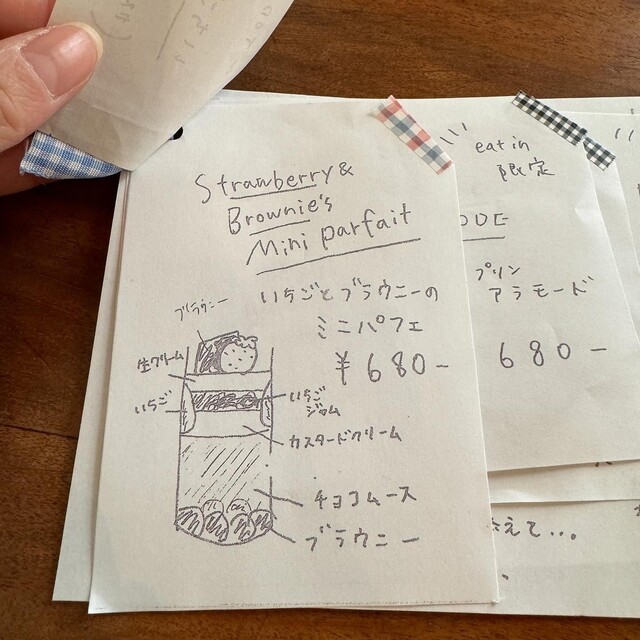 Strawberry &
Brownie's
Mini parfait
いちごとブラウニーの
ミニパフェ
¥680-
ブラウニー
生クリーム
いちご
いちご
ジャム
カスタードクリーム
チョコムース
ブラウニー
eat in
限定
ODE
プリン
アラモード
680-
えて...。